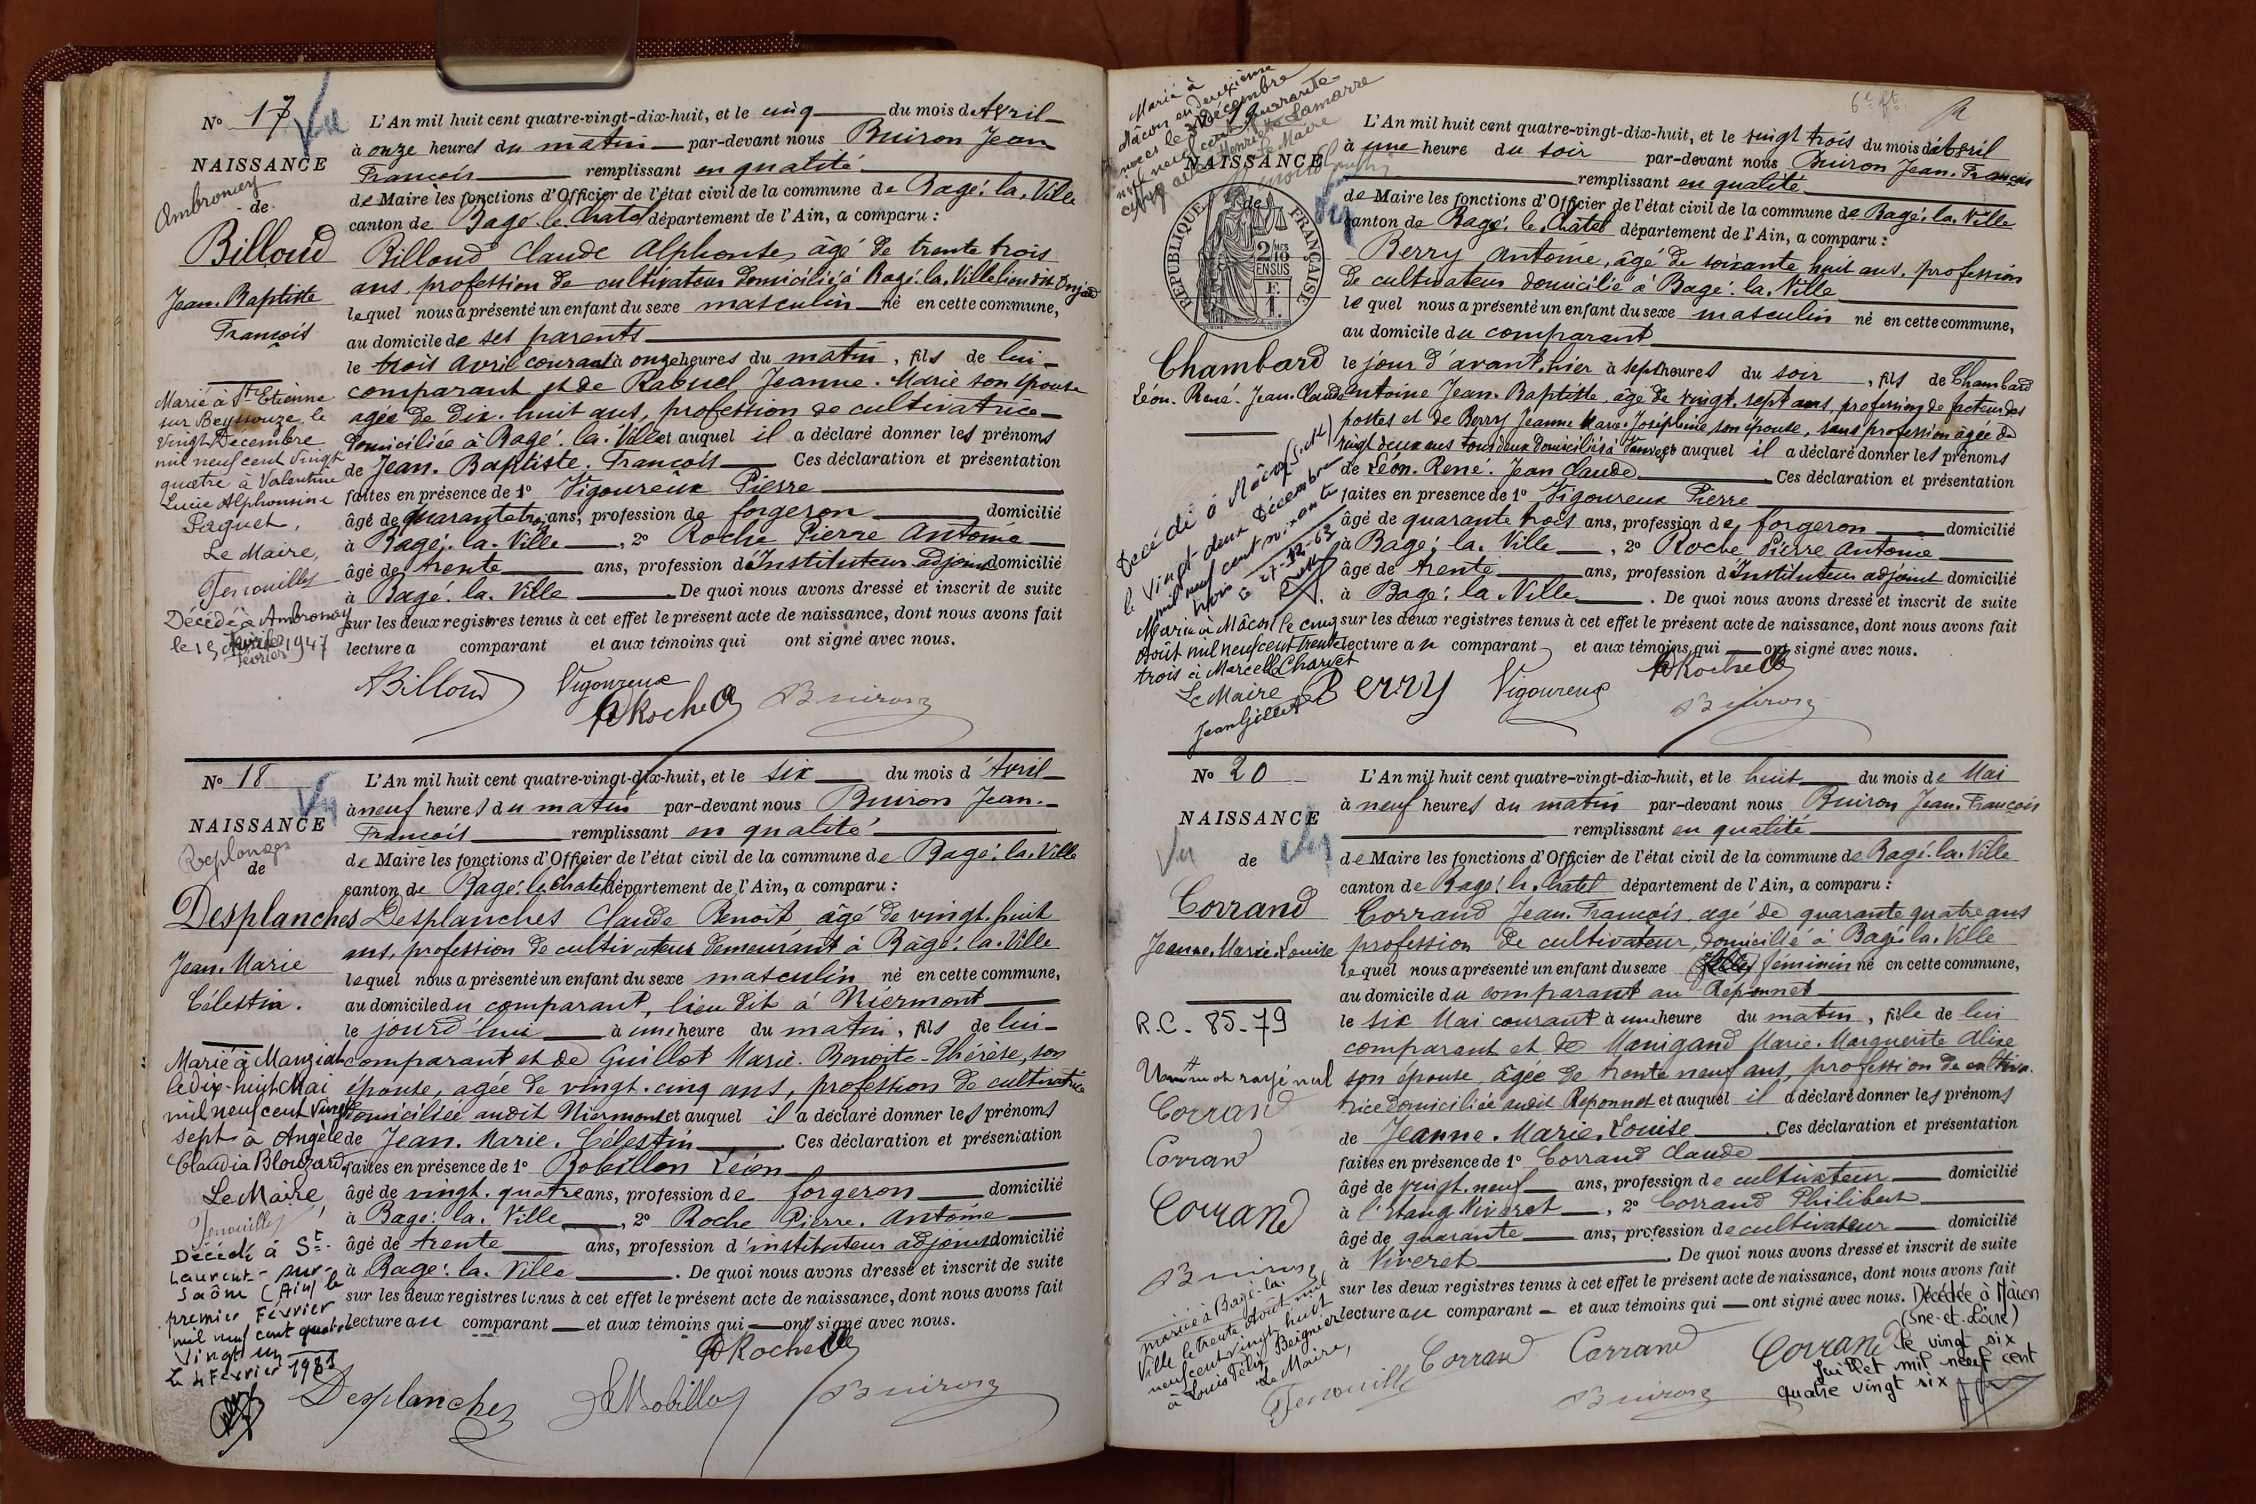 N° 17 Vu
NAISSANCE
Ambronay
de
Billoud
Jean-Baptiste
François
Marié à St Etienne
sur Reyssouze le
vingt Décembre
mil neuf cent vingt
quatre à Valentine
Lucie Alphonsine
Paquet,
Le Maire,
Décédé à Ambronay
le 15 février 1947
février
L'An mil huit cent quatre-vingt-dix-huit, et le cinq du mois de Avril
à onze heures du matin par-devant nous Buiron Jean
François remplissant en qualité
de Maire les fonctions d'Officier de l'état civil de la commune de Bagé-la-Ville
canton de Bagé-le-Chatel département de l'Ain, a comparu :
Billoud Claude Alphonse, âgé de trente trois
ans, profession de cultivateur domicilié à Bagé-la-Ville lieu dit
lequel nous a présenté un enfant du sexe masculin né en cette commune,
au domicile de ses parents
le trois avril courant à onze heures du matin, fils de lui
comparant et de Raquel Jeanne-Marie son épouse
agée de dix-huit ans, profession de cultivatrice
domiciliée à Bagé-la-Ville et auquel il a déclaré donner les prénoms
de Jean-Baptiste-François Ces déclaration et présentation
faites en présence de 1° Vigoureux Pierre
âgé de quarante trois ans, profession de forgeron domicilié
à Bagé-la-Ville, 2° Roche Pierre Antoine
âgé de trente ans, profession d'Instituteur adjoint domicilié
à Bagé-la-Ville. De quoi nous avons dressé et inscrit de suite
sur les deux registres tenus à cet effet le présent acte de naissance, dont nous avons fait
lecture a comparant et aux témoins qui ont signé avec nous.
ABilloud Vigoureux
Roche Buiron
N° 18 Vu
NAISSANCE
Replonges
de
Desplanches
Jean-Marie
Célestin.
Marié à Manziat
le dix-huit Mai
mil neuf cent vingt
sept à Angèle
Claudia Blouzard
Le Maire,
Décédé à St
Laurent-sur-
Saône (Ain) le
premier Février
mil neuf cent quatre
vingt un
Le 4 Février 1981
L'An mil huit cent quatre-vingt-dix-huit, et le six du mois d'Avril
à neuf heures du matin par-devant nous Buiron Jean-
François remplissant en qualité
de Maire les fonctions d'Officier de l'état civil de la commune de Bagé-la-Ville
canton de Bagé-le-Chatel département de l'Ain, a comparu :
Desplanches Claude Benoit âgé de vingt-huit
ans, profession de cultivateur demeurant à Bâgé-la-Ville
lequel nous a présenté un enfant du sexe masculin né en cette commune,
au domicile du comparant, lieu dit à Niermont
le jourd'hui à une heure du matin, fils de lui
comparant et de Guillot Marie-Benoite-Thérèse, son
épouse, agée de vingt-cinq ans, profession de cultivatrice
domiciliée audit Niermont et auquel il a déclaré donner les prénoms
de Jean-Marie-Célestin. Ces déclaration et présentation
faites en présence de 1° Robillon Léon
âgé de vingt-quatre ans, profession de forgeron domicilié
à Bagé-la-Ville, 2° Roche Pierre-Antoine
âgé de trente ans, profession d'instituteur adjoint domicilié
à Bagé-la-Ville. De quoi nous avons dressé et inscrit de suite
sur les deux registres tenus à cet effet le présent acte de naissance, dont nous avons fait
lecture au comparant et aux témoins qui ont signé avec nous.
Roche
Desplanches Buiron
Marié à
Mâcon en deuxième
noces le Décembre
mil neuf cent quarante
cinq à Henriette Lamarre
Le Maire
NAISSANCE
de
RÉPUBLIQUE FRANÇAISE
2/10
EN SUS
Vu
Chambard
Léon-René-Jean-Claude
Décédé à Mâcon (S.et.L)
le vingt-deux Décembre
mil neuf cent soixante
trois
Le 27-12-63
Marié à Mâcon le cinq
Août mil neuf cent trente
trois à Marcelle Charvet
Le Maire
Jean Gillet
L'An mil huit cent quatre-vingt-dix-huit, et le vingt trois du mois d'Avril
à une heure du soir par-devant nous Buiron Jean-François
remplissant en qualité
de Maire les fonctions d'Officier de l'état civil de la commune de Bagé-la-Ville
canton de Bagé-le-Chatel département de l'Ain, a comparu :
Berry Antoine, âgé de soixante huit ans, profession
de cultivateur domicilié à Bagé-la-Ville
lequel nous a présenté un enfant du sexe masculin né en cette commune,
au domicile du comparant
le jour d'avant hier à sept heures du soir, fils de Chambard
Antoine Jean-Baptiste, âgé de vingt-sept ans, profession de facteur des
postes et de Berry Jeanne Marie-Joséphine son épouse, sans profession âgée de
vingt deux ans tous deux domiciliés à et auquel il a déclaré donner les prénoms
de Léon-René-Jean Claude Ces déclaration et présentation
faites en présence de 1° Vigoureux Pierre
âgé de quarante trois ans, profession de forgeron domicilié
à Bagé-la-Ville, 2° Roche Pierre Antoine
âgé de trente ans, profession d'Instituteur adjoint domicilié
à Bagé-la-Ville. De quoi nous avons dressé et inscrit de suite
sur les deux registres tenus à cet effet le présent acte de naissance, dont nous avons fait
lecture au comparant et aux témoins qui ont signé avec nous.
Berry Vigoureux Roche
Buiron
N° 20
NAISSANCE
Vu de Vu
Corrand
Jeanne-Marie-Louise
R.C. - 85-79
Un mot rayé nul
Corrand
Corrand
Corrand
Buiron
mariée à Bagé-la-
Ville le trente Août mil
neuf cent vingt huit
à Louis Félix Beignier
Le Maire,
L'An mil huit cent quatre-vingt-dix-huit, et le huit du mois de Mai
à neuf heures du matin par-devant nous Buiron Jean-François
remplissant en qualité
de Maire les fonctions d'Officier de l'état civil de la commune de Bagé-la-Ville
canton de Bagé-le-Chatel département de l'Ain, a comparu :
Corrand Jean-François, agé de quarante quatre ans
profession de cultivateur, domicilié à Bagé-la-Ville
lequel nous a présenté un enfant du sexe féminin né en cette commune,
au domicile du comparant au Réponnet
le six Mai courant à une heure du matin, fille de lui
comparant et de Manigand Marie-Marguerite Alise
son épouse, âgée de trente neuf ans, profession de cultiva-
trice domiciliée audit Reponnet et auquel il a déclaré donner les prénoms
de Jeanne-Marie-Louise. Ces déclaration et présentation
faites en présence de 1° Corrand Claude
âgé de vingt-neuf ans, profession de cultivateur domicilié
à l'Etang Viveret, 2° Corrand Philibert
âgé de quarante ans, profession de cultivateur domicilié
à Viveret. De quoi nous avons dressé et inscrit de suite
sur les deux registres tenus à cet effet le présent acte de naissance, dont nous avons fait
lecture au comparant et aux témoins qui ont signé avec nous.
Corrand Corrand Corrand
Buiron
Décédée à Mâcon
(Sne-et-Loire)
le vingt six
Juillet mil neuf cent
quatre vingt six